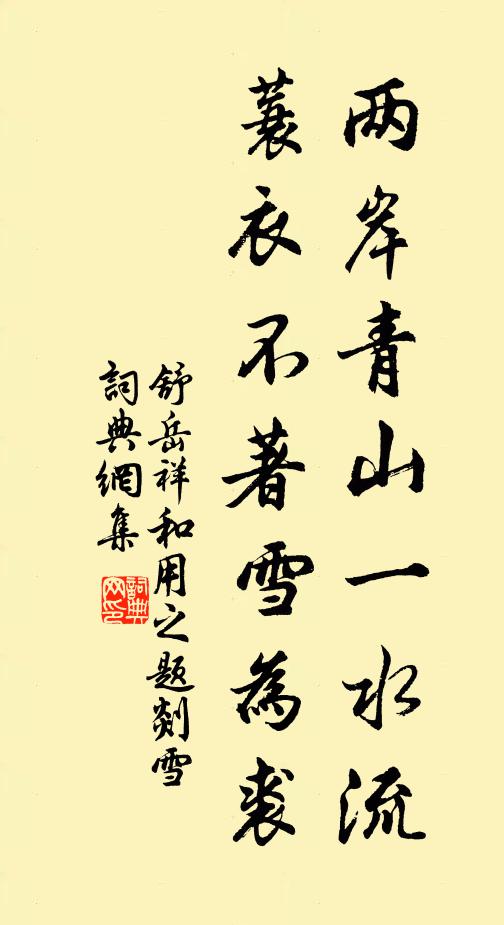 两岸青山一水流
蓑衣不著雪為裘
舒岳祥和用之題剡雪
詞典網集
詞典网印